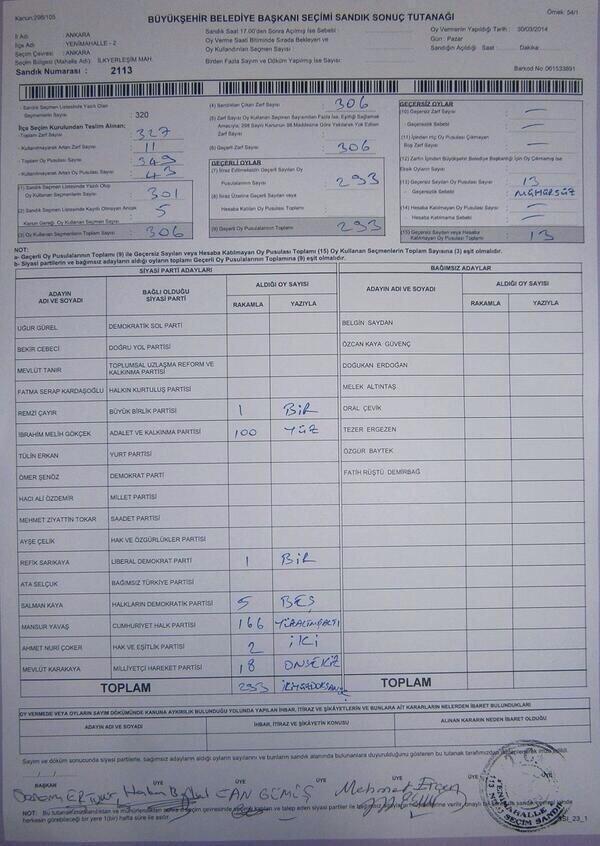 Kanun:298/105
Örnek: 54/1
BÜYÜKŞEHİR BELEDİYE BAŞKANI SEÇİMİ SANDIK SONUÇ TUTANAĞI
İl Adı : ANKARA
İlçe Adı : YENİMAHALLE - 2
Seçim Çevresi : ANKARA
Seçim Bölgesi (Mahalle Adı): İLKYERLEŞİM MAH.
Sandık Numarası : 2113
Sandık Saat 17.00'den Sonra Açılmış İse Sebebi :
Oy Verme Saati Bitiminde Sırada Bekleyen ve
Oy Kullandırılan Seçmen Sayısı :
Birden Fazla Sayım ve Döküm Yapılmış İse Sayısı:
Oy Vermenin Yapıldığı Tarih : 30/03/2014
Gün : Pazar
Sandığın Açıldığı Saat : Dakika:
Barkod No:061533891
- Sandık Seçmen Listesinde Yazılı Olan
Seçmenlerin Sayısı : 320
İlçe Seçim Kurulundan Teslim Alınan;
-Toplam Zarf Sayısı : 327
-Kullanılmayarak Artan Zarf Sayısı : 11
-Toplam Oy Pusulası Sayısı : 349
-Kullanılmayarak Artan Oy Pusulası Sayısı : 43
(1) Sandık Seçmen Listesinde Yazılı Olup
Oy Kullanan Seçmenlerin Sayısı : 301
(2) Sandık Seçmen Listesinde Kayıtlı Olmayan Ancak
Kanun Gereği Oy Kullanan Seçmen Sayısı : 5
(3) Oy Kullanan Seçmenlerin Toplam Sayısı : 306
(4) Sandıktan Çıkan Zarf Sayısı : 306
(5) Zarf Sayısı Oy Kullanan Seçmen Sayısından Fazla İse, Eşitliği Sağlamak
Amacıyla; 298 Sayılı Kanunun 98.Maddesine Göre Yakılarak Yok Edilen
Zarf Sayısı :
(6) Geçerli Zarf Sayısı : 306
GEÇERLİ OYLAR
(7) İtiraz Edilmeksizin Geçerli Sayılan Oy
Pusulalarının Sayısı : 293
(8) İtiraz Üzerine Geçerli Sayılan veya
Hesaba Katılan Oy Pusulası Toplamı
(9) Geçerli Oy Pusulalarının Toplamı : 293
GEÇERSİZ OYLAR
(10) Geçersiz Zarf Sayısı : —
- Geçersizlik Sebebi :
(11) İçinden Hiç Oy Pusulası Çıkmayan
Boş Zarf Sayısı : —
(12) Zarfın İçinden Büyükşehir Belediye Başkanlığı İçin Oy Çıkmamış İse
Eksik Oyların Sayısı :
(13) Geçersiz Sayılan Oy Pusulası Sayısı : 13
- Geçersizlik Sebebi : MÜHÜRSÜZ
(14) Hesaba Katılmayan Oy Pusulası Sayısı : —
- Hesaba Katılmama Sebebi : —
(15) Geçersiz Sayılan veya Hesaba
Katılmayan Oy Pusulası Toplamı : 13
NOT:
a- Geçerli Oy Pusulalarının Toplamı (9) ile Geçersiz Sayılan veya Hesaba Katılmayan Oy Pusulası Toplamı (15) Oy Kullanan Seçmenlerin Toplam Sayısına (3) eşit olmalıdır.
b- Siyasi partilerin ve bağımsız adayların aldığı oyların toplamı Geçerli Oy Pusulalarının Toplamına (9) eşit olmalıdır.
SİYASİ PARTİ ADAYLARI
BAĞIMSIZ ADAYLAR
ADAYIN ADI VE SOYADI
BAĞLI OLDUĞU SİYASİ PARTİ
ALDIĞI OY SAYISI
RAKAMLA YAZIYLA
ADAYIN ADI VE SOYADI
ALDIĞI OY SAYISI
RAKAMLA YAZIYLA
UĞUR GÜREL DEMOKRATİK SOL PARTİ
BEKİR CEBECİ DOĞRU YOL PARTİSİ
MEVLÜT TANIR TOPLUMSAL UZLAŞMA REFORM VE KALKINMA PARTİSİ
FATMA SERAP KARDAŞOĞLU HALKIN KURTULUŞ PARTİSİ
REMZİ ÇAYIR BÜYÜK BİRLİK PARTİSİ 1 BİR
İBRAHİM MELİH GÖKÇEK ADALET VE KALKINMA PARTİSİ 100 YÜZ
TÜLİN ERKAN YURT PARTİSİ
ÖMER ŞENÖZ DEMOKRAT PARTİ
HACI ALİ ÖZDEMİR MİLLET PARTİSİ
MEHMET ZİYATTİN TOKAR SAADET PARTİSİ
AYŞE ÇELİK HAK VE ÖZGÜRLÜKLER PARTİSİ
REFİK SARIKAYA LİBERAL DEMOKRAT PARTİ 1 BİR
ATA SELÇUK BAĞIMSIZ TÜRKİYE PARTİSİ
SALMAN KAYA HALKLARIN DEMOKRATİK PARTİSİ 5 BEŞ
MANSUR YAVAŞ CUMHURİYET HALK PARTİSİ 166 YÜZALTMIŞALTI
AHMET NURİ ÇOKER HAK VE EŞİTLİK PARTİSİ 2 İKİ
MEVLÜT KARAKAYA MİLLİYETÇİ HAREKET PARTİSİ 18 ONSEKİZ
TOPLAM 293
BELGİN SAYDAN
ÖZCAN KAYA GÜVENÇ
DOĞUKAN ERDOĞAN
MELEK ALTINTAŞ
ORAL ÇEVİK
TEZER ERGEZEN
ÖZGÜR BAYTEK
FATİH RÜŞTÜ DEMİRBAĞ
TOPLAM
OY VERMEDE VEYA OYLARIN SAYIM DÖKÜMÜNDE KANUNA AYKIRILIK BULUNDUĞU YOLUNDA YAPILAN İHBAR, İTİRAZ VE ŞİKÂYETLERİN VE BUNLARA AİT KARARLARIN NELERDEN İBARET BULUNDUKLARI
ADAYIN ADI VE SOYADI
İHBAR, İTİRAZ VE ŞİKÂYETİN KONUSU
ALINAN KARARIN NEDEN İBARET OLDUĞU
Sayım ve döküm sonucunda siyasi partilerin, bağımsız adayların aldığı oyların sayılarını ve bunların sandık alanında bulunanlara duyurulduğunu gösteren bu tutanak tarafımızdan
BAŞKAN ÜYE ÜYE ÜYE ÜYE
CAN GÜMÜŞ
Mehmet
NOT: